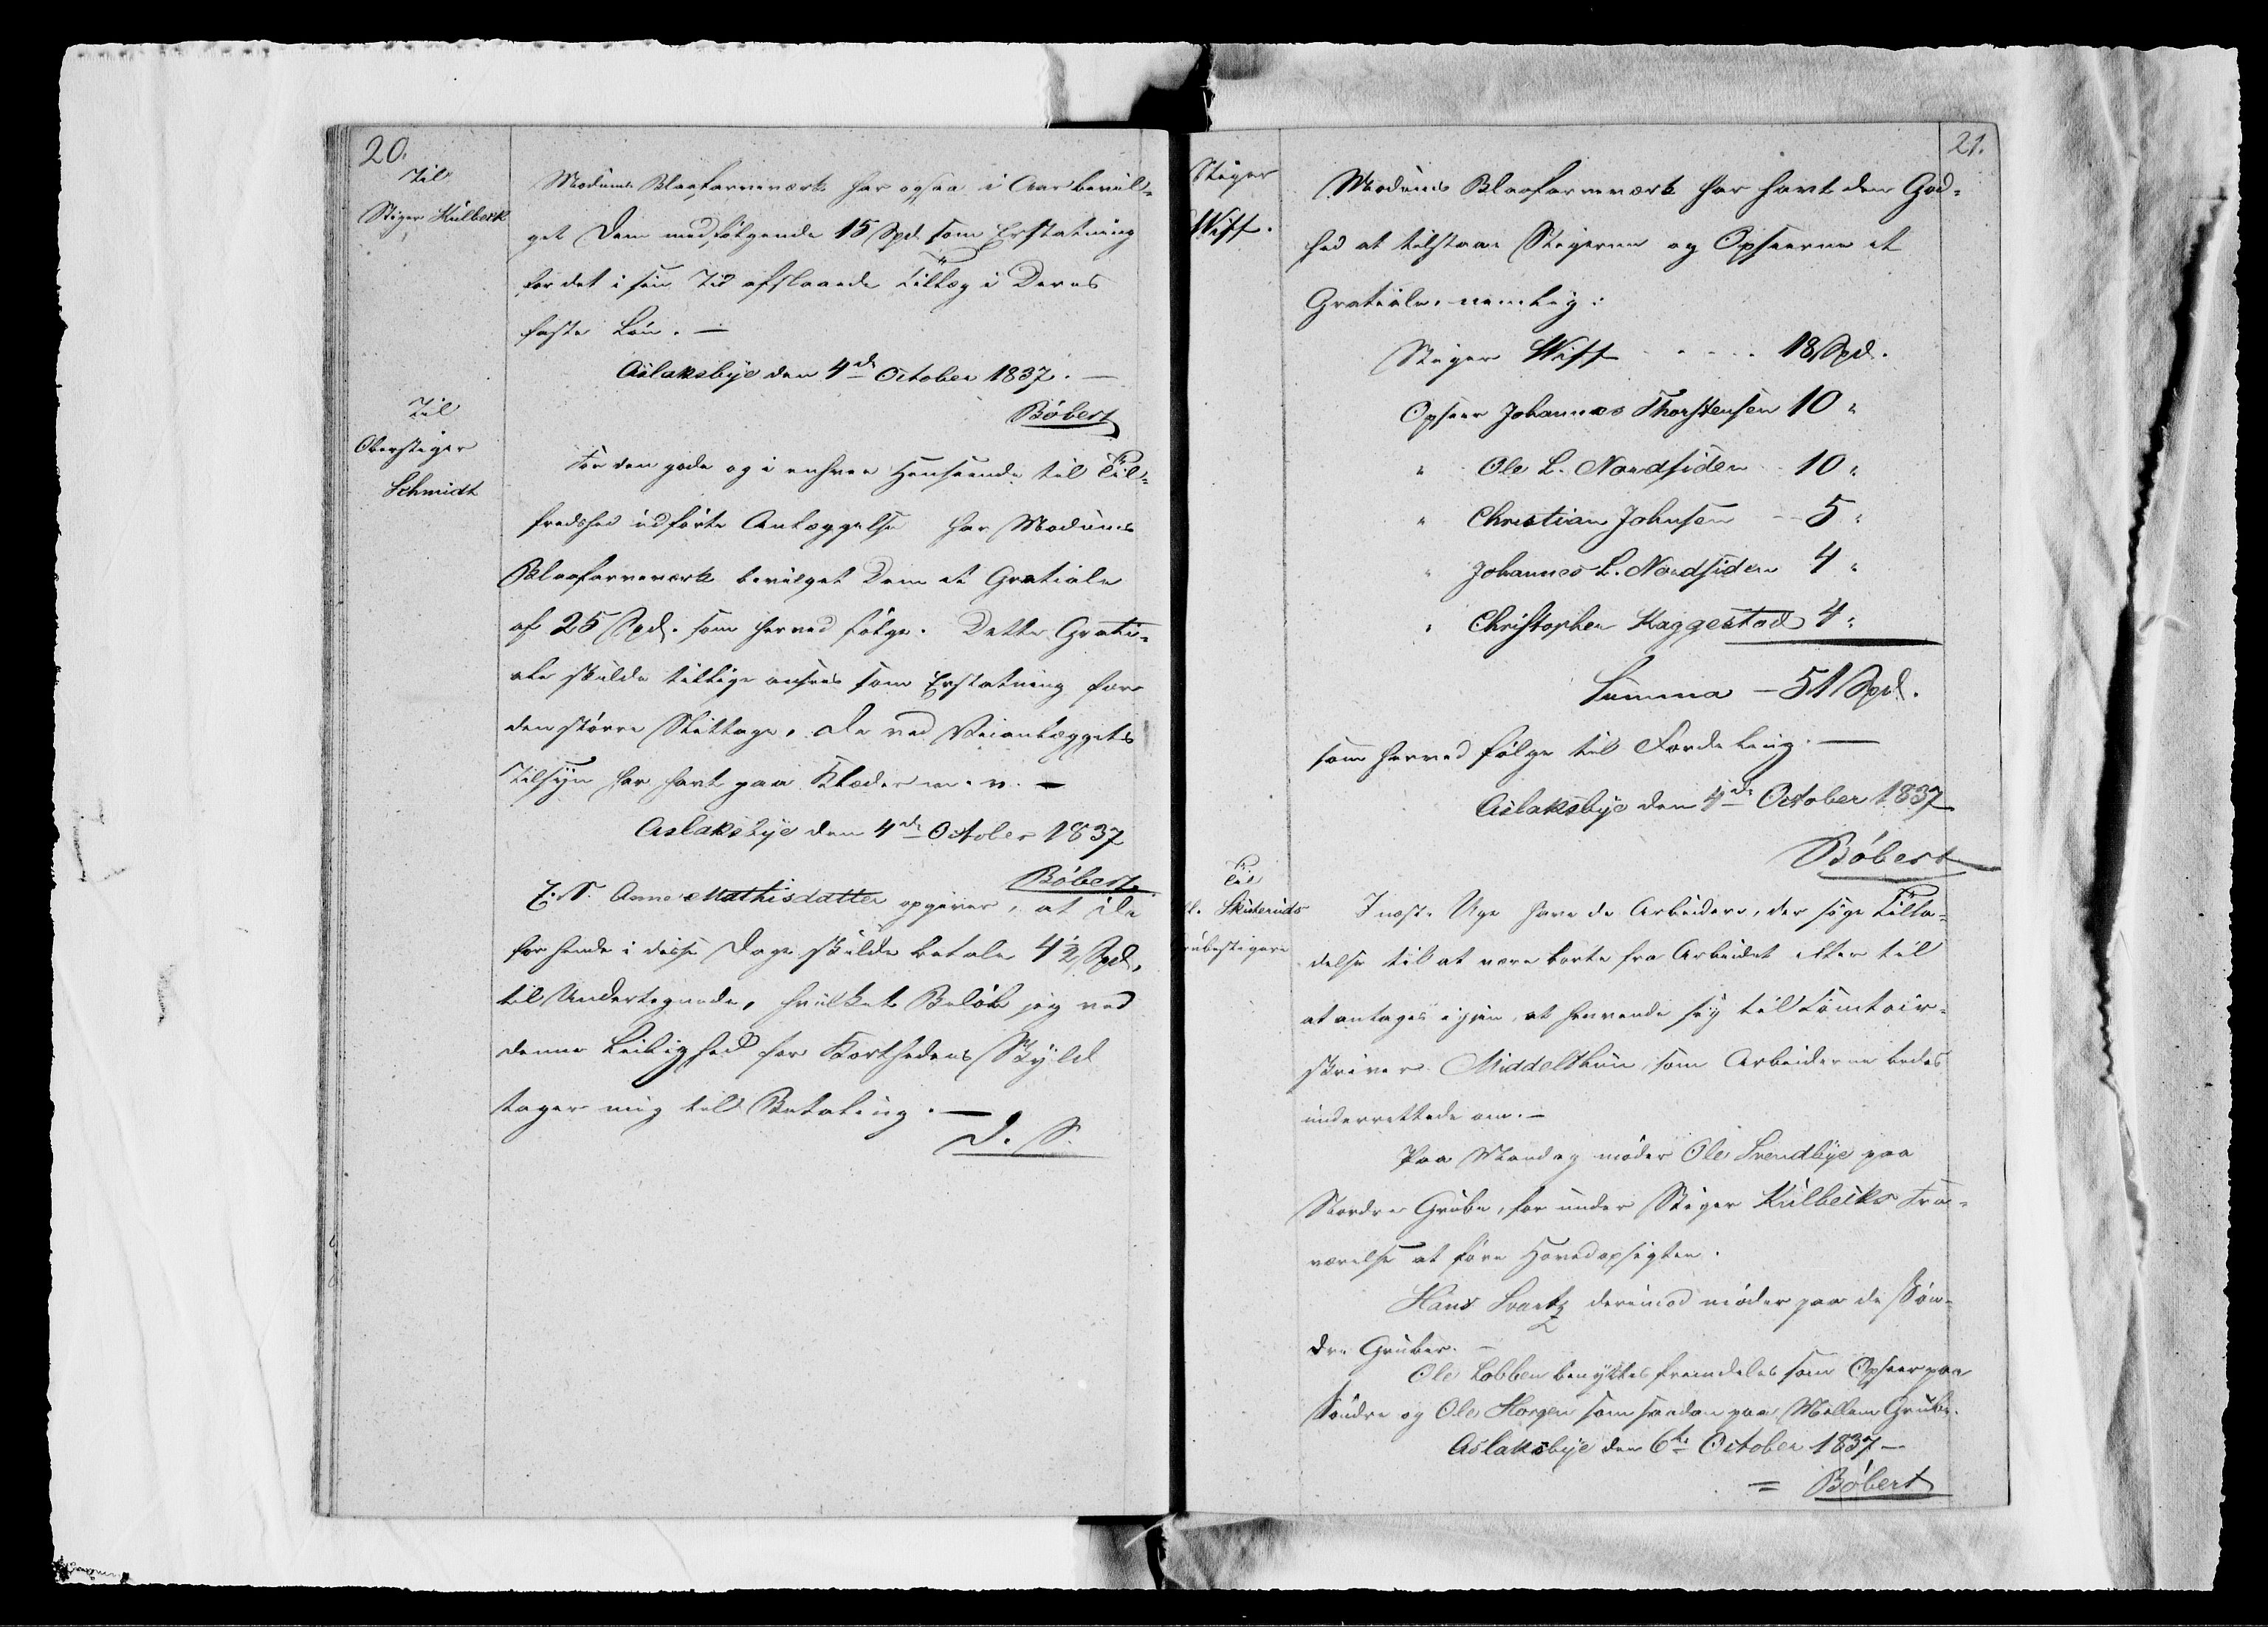 20.
Til
Stiger Külbeck
Modums Blaafarveværk har ogsaa i Aar bevil=
get Dem medfølgende 15 Spd. som Erstatning
for det i sin Tid afslaaede Tillæg i Deres
faste Løn. —
Aslaksbye den 4de October 1837. —
Böbert
Til
Oberstiger
Schmidt
For den gode og i enhver Henseende til Til=
fredshed udførte Anlæggelse har Modums
Blaafarveværk bevilget Dem et Gratiale
af 25 Spd. som herved følge. Dette Grati=
ale skulde tillige ansees som Erstatning for
den større Slittage, De ved Veianlæggets
Tilsyn har havt paa Klæder m. v. —
Aslaksbye den 4de October 1837
Böbert
E. S. Anne Mathisdatter opgiver, at De
for hende i disse Dage skulde betale 4½ Spd.
til Undertegnede, hvilket Beløb jeg ved
denne Leilighed for Kortheds Skyld
tager mig til Betaling. —
D. S.
21.
Stiger
Wiff.
Modums Blaafarveværk har havt den God=
hed at tilstaae Stigerne og Opseerne et
Gratiale, nemlig:
Stiger Wiff - - - - 18 Spd.
Opseer Johannes Thorstensen 10 "
" Ole L. Nordsiden - 10 "
" Christian Johnsen - 5 "
" Johannes L. Nordsiden 4 "
" Christopher Kaggestad 4 "
Summa - 51 Spd.
som herved følge til Fordeling. —
Aslaksbye den 4de October 1837
Böbert
Til
Skuteruds
Grubestigere
I næste Uge have de Arbeidere, der søge Tilla=
delse til at være borte fra Arbeidet eller til
at antages igjen, at henvende sig til Comtoir=
skriver Middelthun, som Arbeiderne bedes
underrettede om. —
Paa Mandag møder Ole Svendbye paa
Nordre Grube, for under Stiger Külbecks Fra=
værelse at føre Hovedopsigten.
Hans Svartz derimod møder paa de Søn=
dre Gruber. —
Ole Lobben benyttes fremdeles som Opseer paa
Søndre og Ole Horgen som saadan paa Mellem Grube.
Aslaksbye den 6te October 1837 —
= Böbert